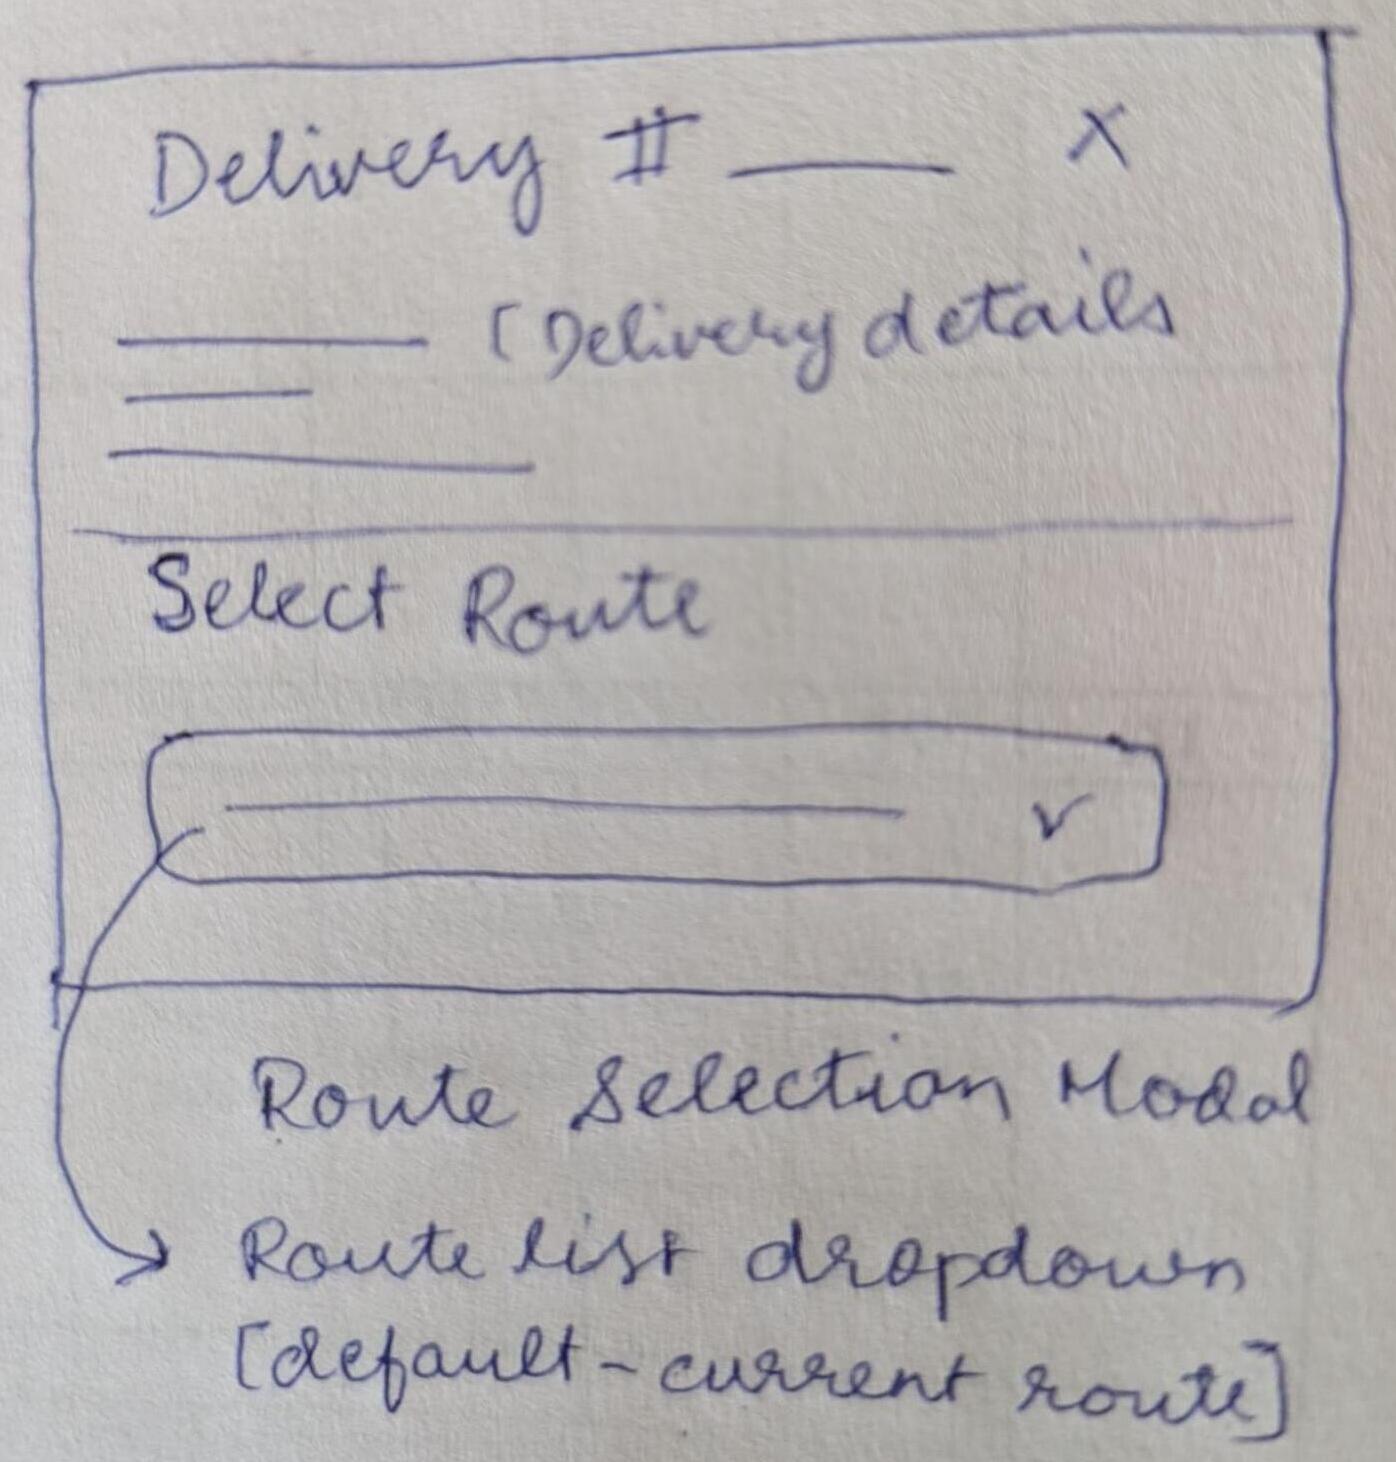 Delivery # ____ X
[Delivery details
Select Route
Route Selection Modal
Route list dropdown
[default - current route]